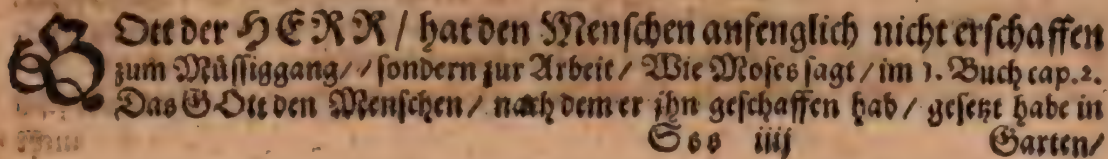 GOtt der HERR / hat den Menschen anfenglich nicht erschaffen
zum Müssiggang / / sondern zur Arbeit / Wie Moses sagt / im 1. Buch cap. 2.
Das GOtt den Menschen / nach dem er ihn geschaffen hab / gesetzt habe in
Sss iiij Garten /